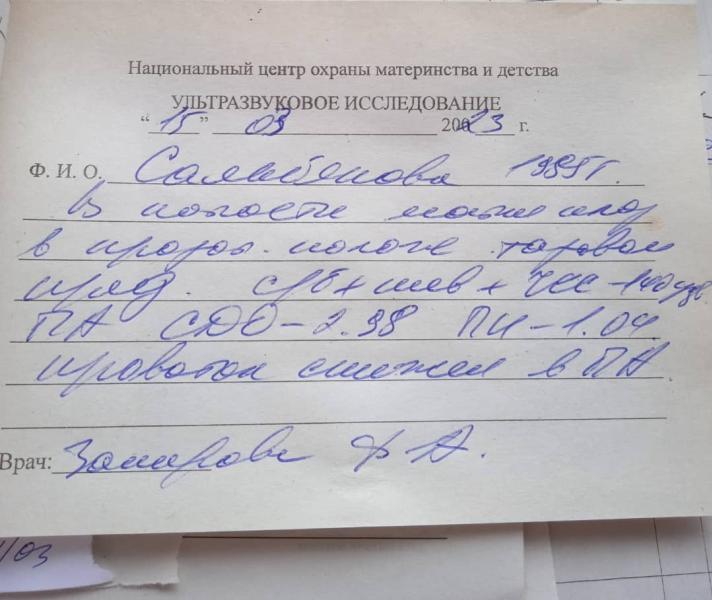 Национальный центр охраны материнства и детства
УЛЬТРАЗВУКОВОЕ ИССЛЕДОВАНИЕ
“ 15 ” 03 2023 г.
Ф. И. О. 1995 г.
В полости матки плод
в продол. полож. тазовом
пред. с/б+ шев + ЧСС - 140 уд
ПА СДО - 2.98 ПИ - 1.04.
кровоток снижен в ПА.
Врач: Закирова Ф А.
/03